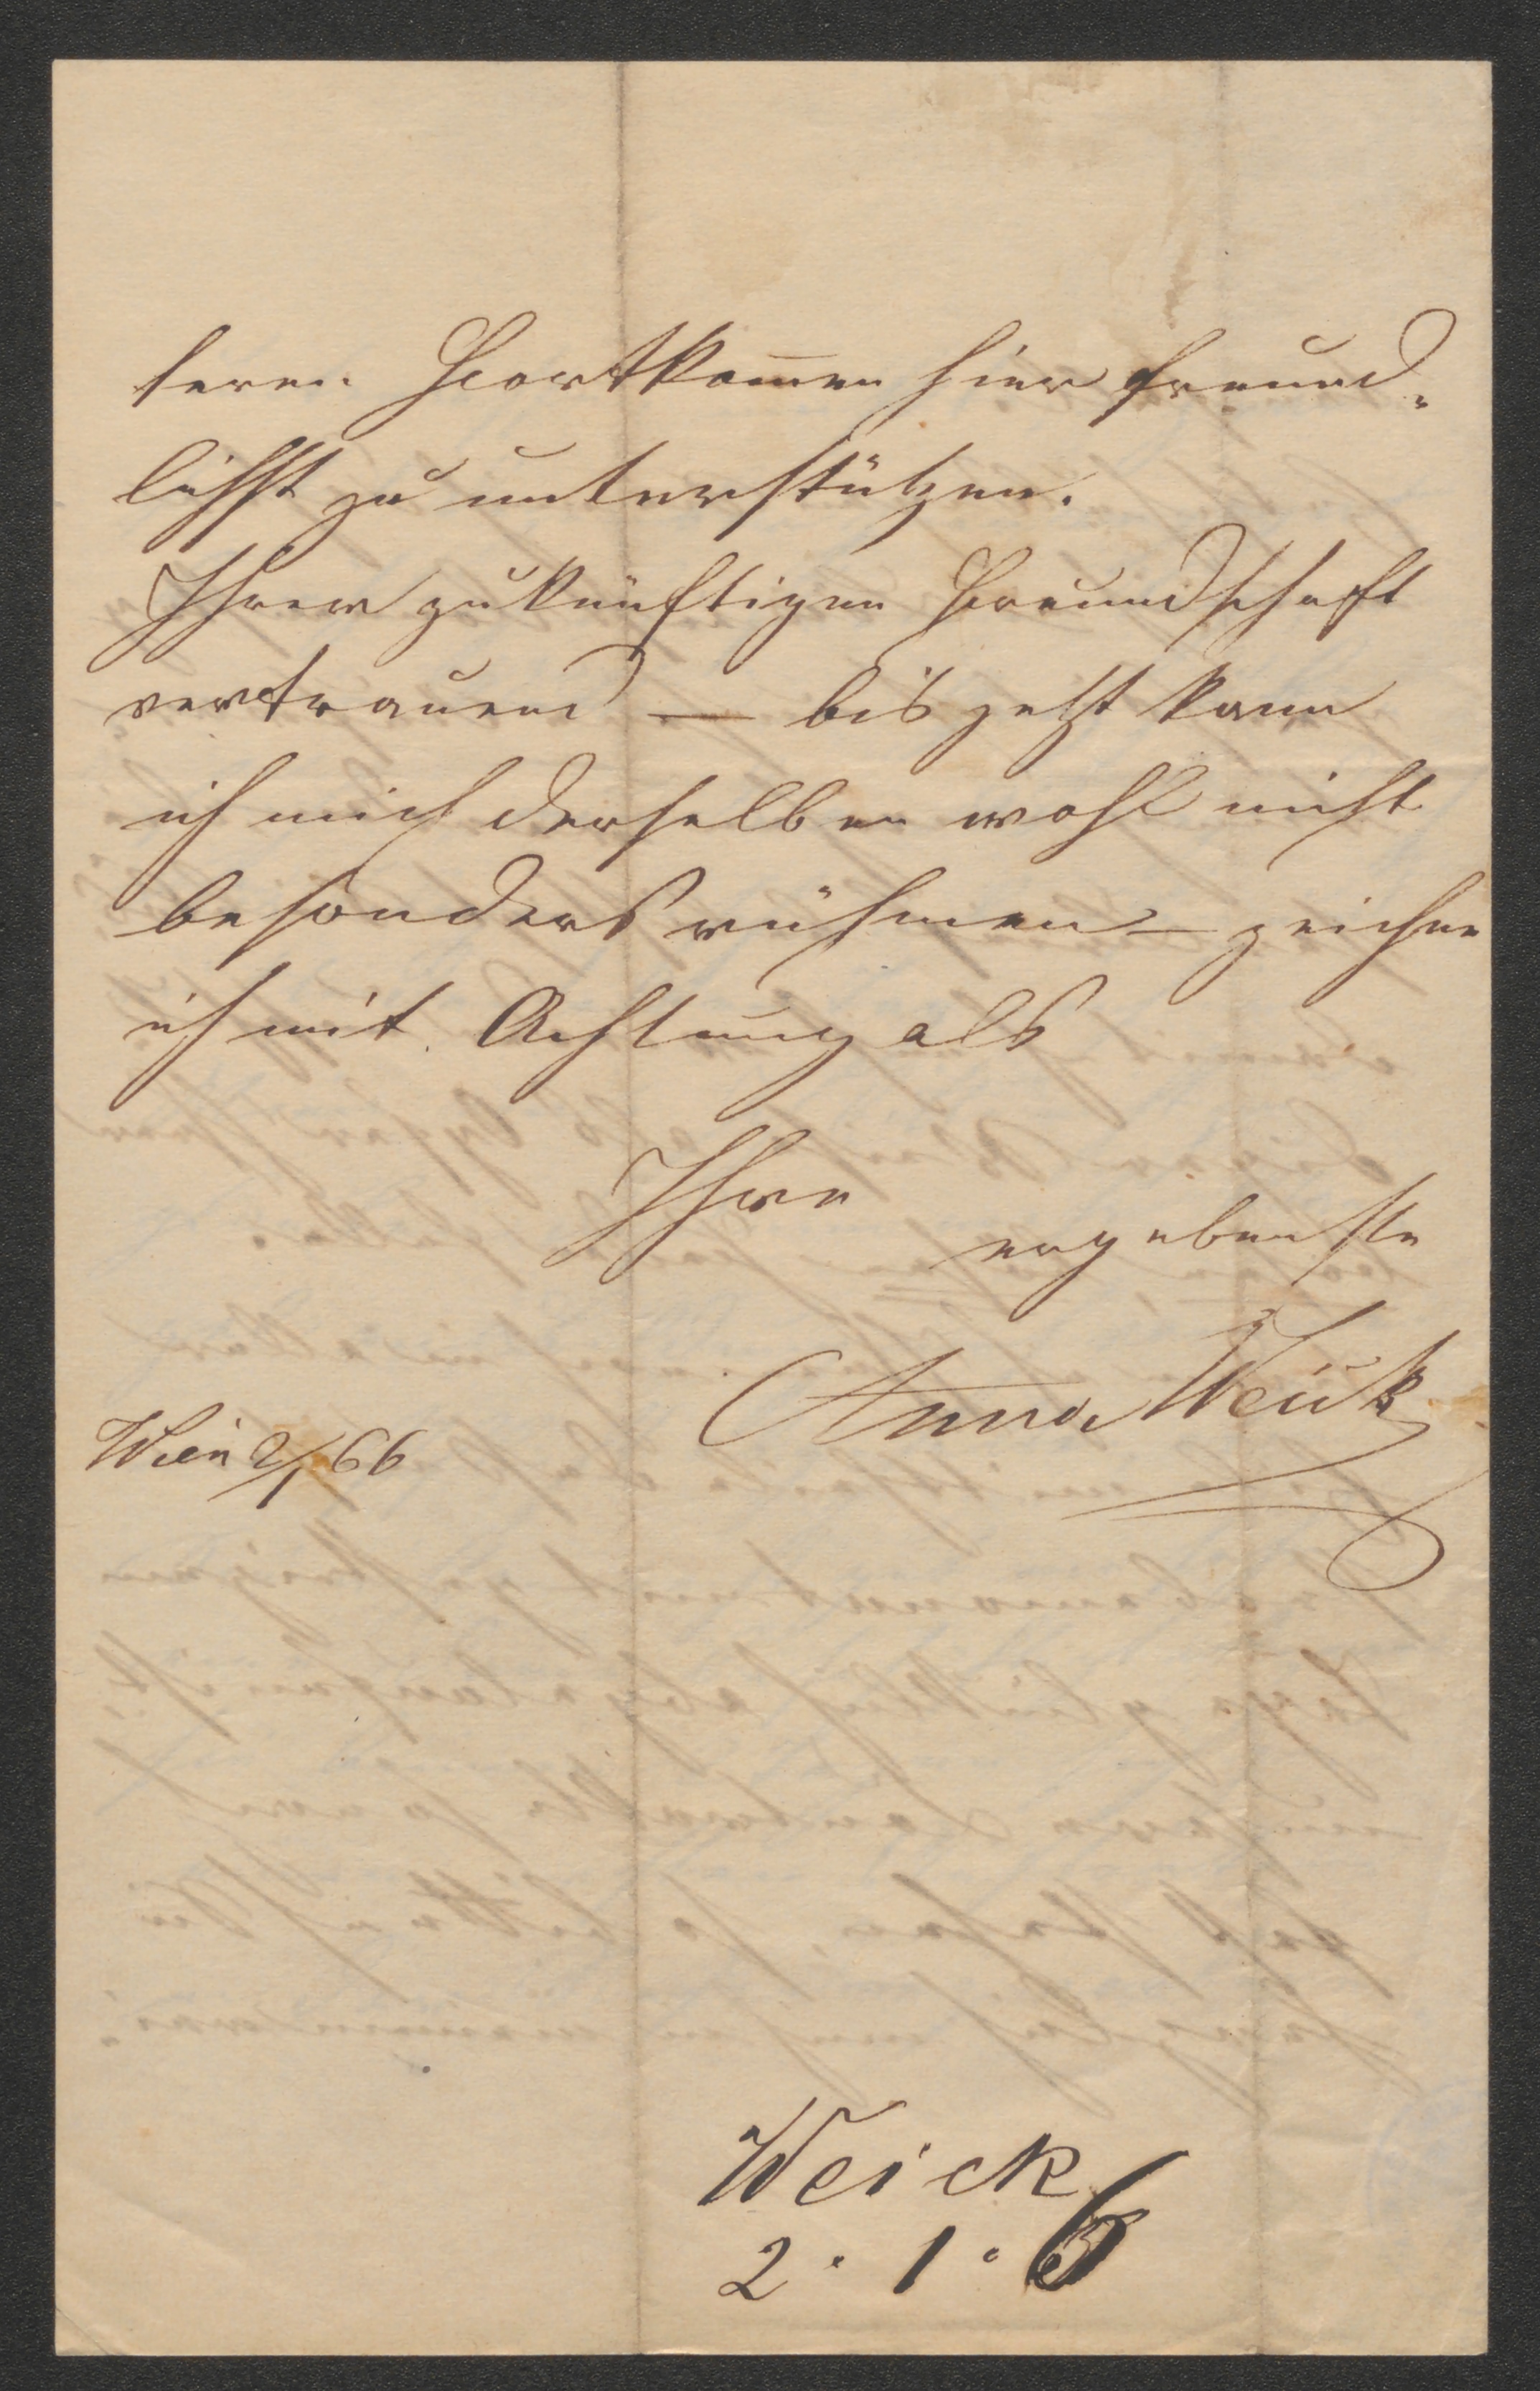 feren Fortkom̅en hier freund„
lichst zu unterstützen.
Ihrer zukünftigen Freundschaft
vertrauend — bis jetzt kann
ich mich derselben wohl nicht
besonders rühmen — zeichne
ich mit Achtung als
Ihre
ergebenste
Anna Weick
Wien 2/1 66
Weick
2. 1. 6